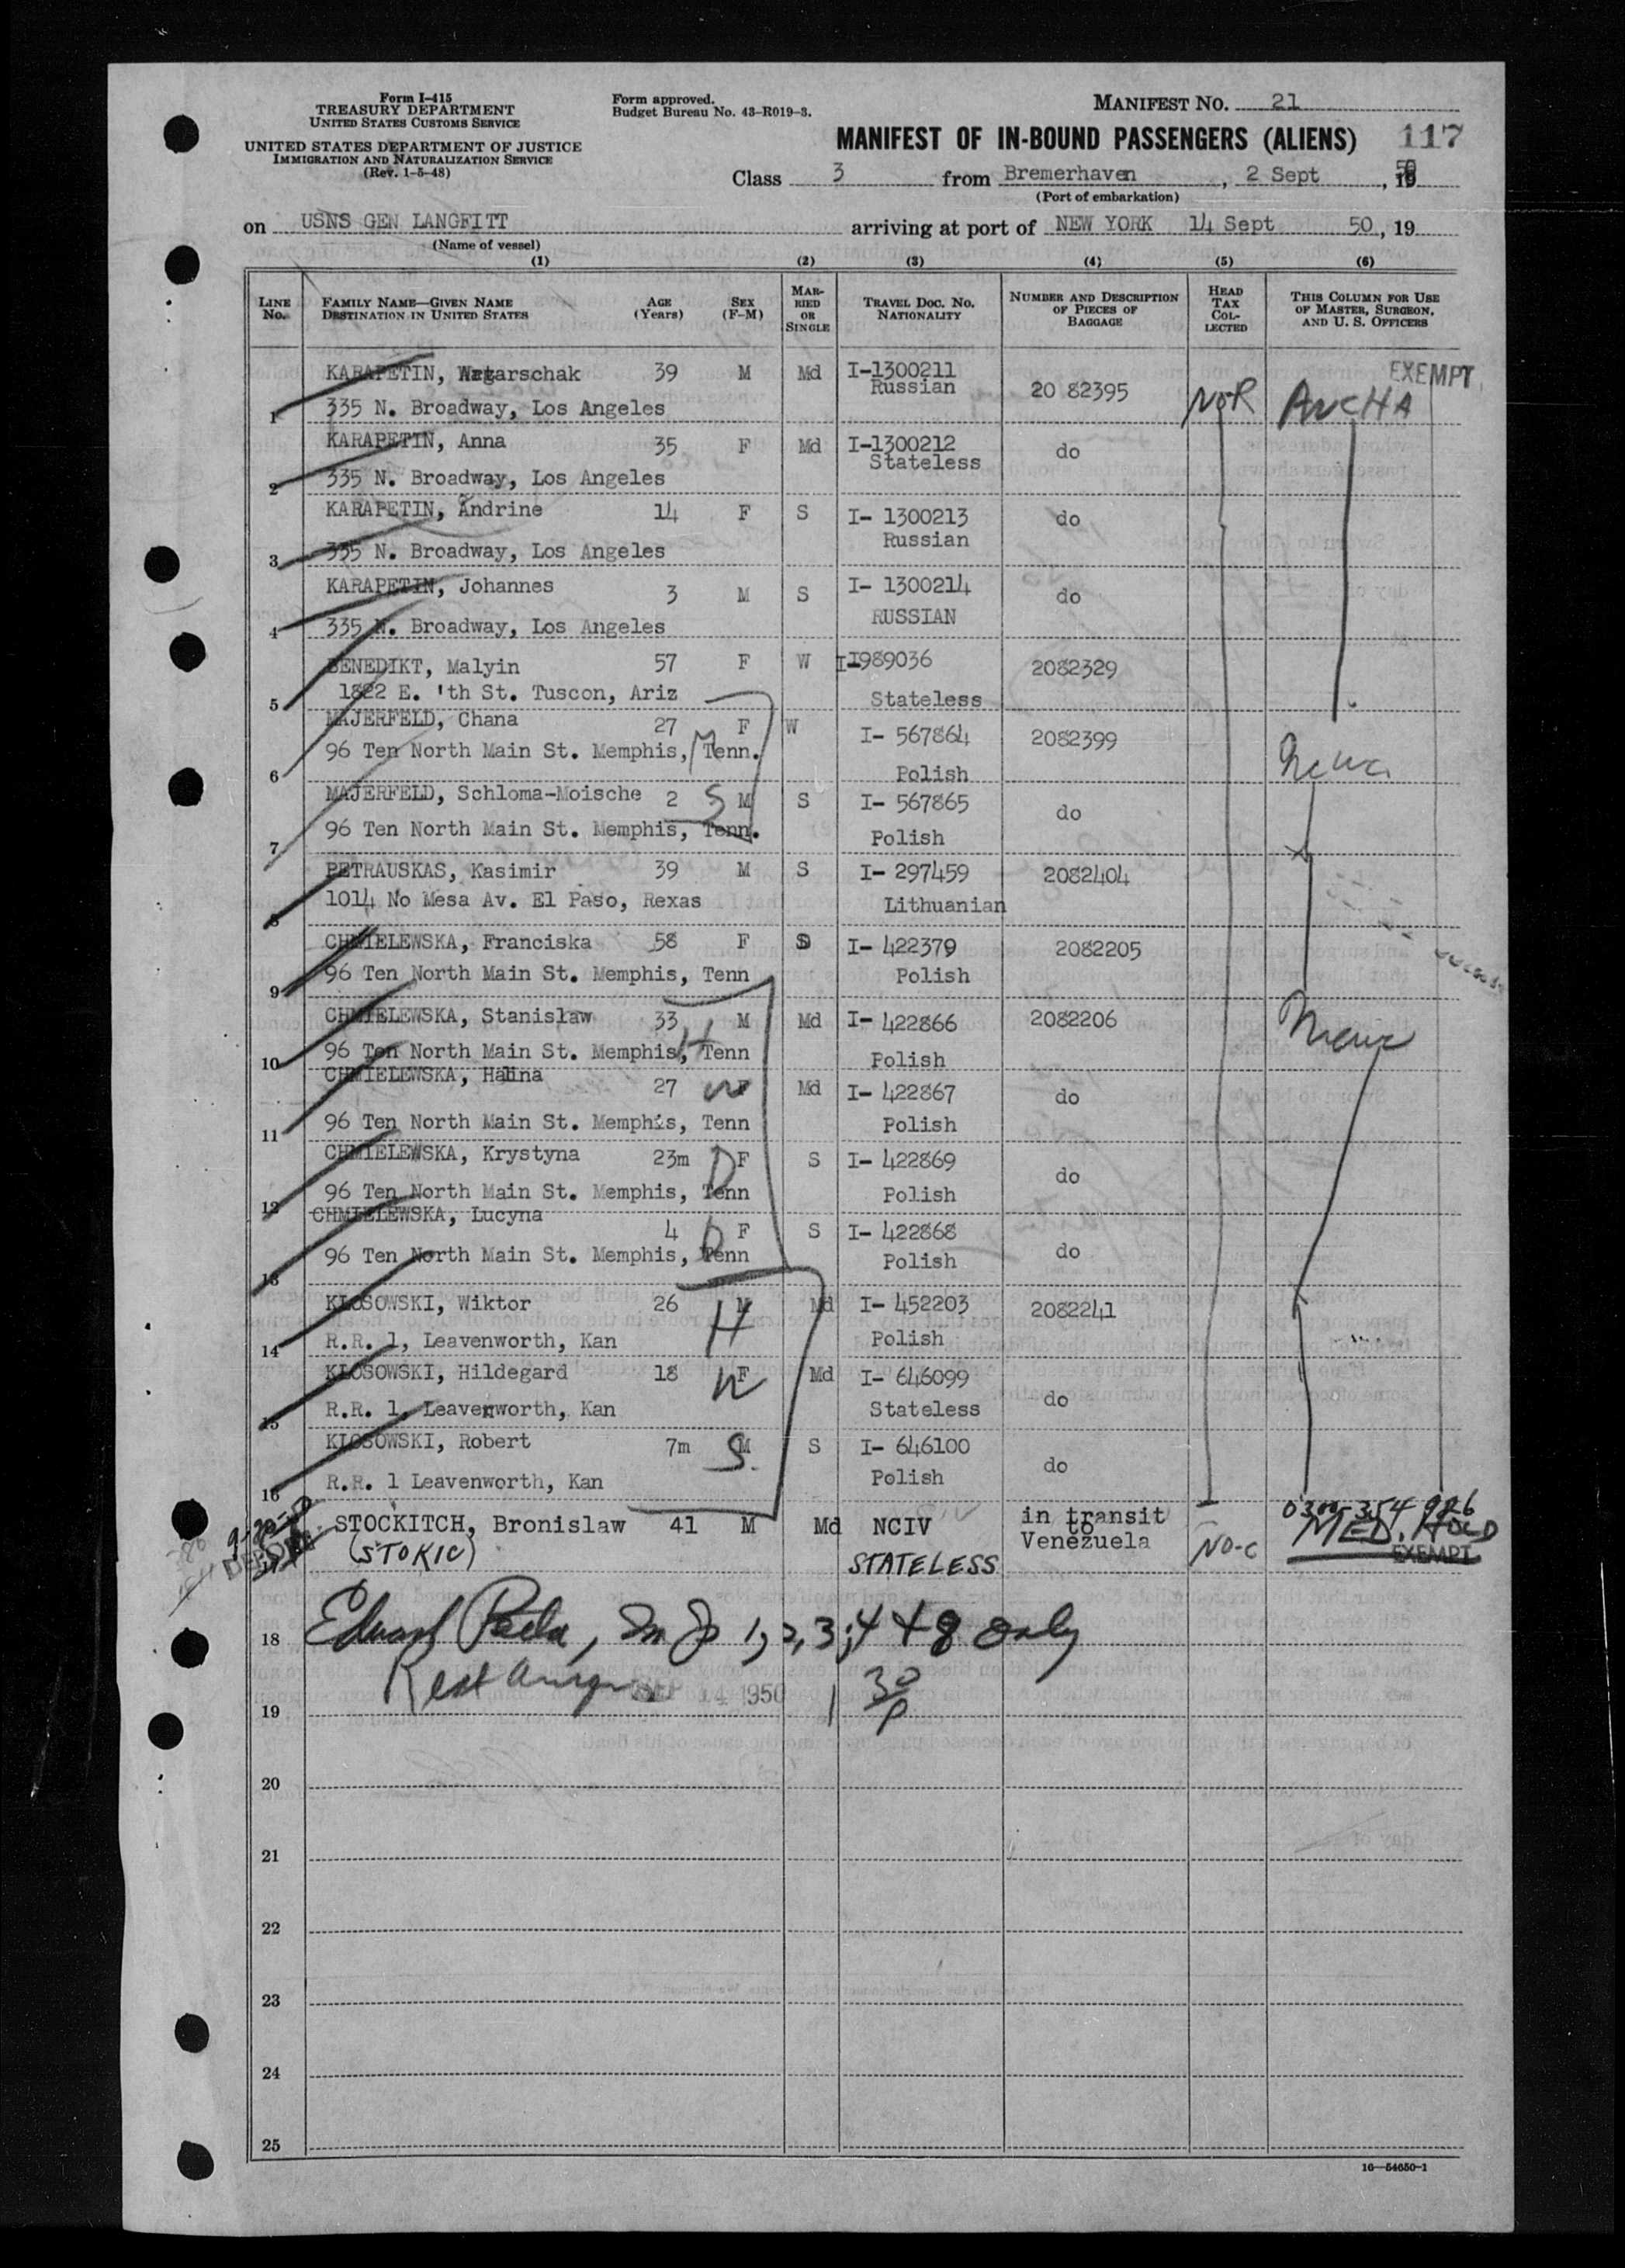 Form I-415
TREASURY DEPARTMENT
UNITED STATES CUSTOMS SERVICE
UNITED STATES DEPARTMENT OF JUSTICE
IMMIGRATION AND NATURALIZATION SERVICE
(Rev. 1-5-48)
Form approved.
Budget Bureau No. 43-R019-3.
MANIFEST NO. 21
MANIFEST OF IN-BOUND PASSENGERS (ALIENS) 117
Class 3 from Bremerhaven, 2 Sept, 19 50
(Port of embarkation)
on USNS GEN LANGFITT arriving at port of NEW YORK 14 Sept 50, 19
(Name of vessel)
(1) (2) (3) (4) (5) (6)
LINE No. FAMILY NAME—GIVEN NAME DESTINATION IN UNITED STATES AGE (Years) SEX (F-M) MARRIED OR SINGLE TRAVEL DOC. NO. NATIONALITY NUMBER AND DESCRIPTION OF PIECES OF BAGGAGE HEAD TAX COLLECTED THIS COLUMN FOR USE OF MASTER, SURGEON, AND U. S. OFFICERS
KARAPETIN, 39 M Md I-1300211 Russian 20 82395 EXEMPT
1 335 N. Broadway, Los Angeles
KARAPETIN, Anna 35 F Md I-1300212 Stateless do
2 335 N. Broadway, Los Angeles
KARAPETIN, Andrine 14 F S I- 1300213 Russian do
3 335 N. Broadway, Los Angeles
KARAPETIN, Johannes 3 M S I- 1300214 RUSSIAN do
4 335 N. Broadway, Los Angeles
BENEDIKT, Malyin 57 F W I1989036 2082329
5 1822 E. 'th St. Tuscon, Ariz Stateless
MAJERFELD, Chana 27 F W I- 567864 2082399
6 96 Ten North Main St. Memphis, Tenn. M Polish
MAJERFELD, Schloma-Moische 2 S M S I- 567865 do
7 96 Ten North Main St. Memphis, Tenn. Polish
PETRAUSKAS, Kasimir 39 M S I- 297459 2082404
8 1014 No Mesa Av. El Paso, Rexas Lithuanian
CHMIELEWSKA, Franciska 58 F I- 422379 2082205
9 96 Ten North Main St. Memphis, Tenn Polish
CHMIELEWSKA, Stanislaw 33 M Md I- 422866 2082206
10 96 Ten North Main St. Memphis, Tenn H Polish
CHMIELEWSKA, Halina 27 W F Md I- 422867 do
11 96 Ten North Main St. Memphis, Tenn Polish
CHMIELEWSKA, Krystyna 23m D F S I- 422869 do
12 96 Ten North Main St. Memphis, Tenn Polish
CHMIELEWSKA, Lucyna 4 D F S I- 422868 do
13 96 Ten North Main St. Memphis, Tenn Polish
KLOSOWSKI, Wiktor 26 H M Md I- 452203 2082241
14 R.R. 1, Leavenworth, Kan Polish
KLOSOWSKI, Hildegard 18 W F Md I- 646099 do
15 R.R. 1, Leavenworth, Kan Stateless
KLOSOWSKI, Robert 7m S. M S I- 646100 do
16 R.R. 1 Leavenworth, Kan Polish
STOCKITCH, Bronislaw 41 M Md NCIV in transit to Venezuela NO-C MED. HOLD EXEMPT
(STOKIC) STATELESS
18 1, 2, 3, 4 + 8 only
19 SEP 14 1950 1 30 P
20
21
22
23
24
25
16—54650-1